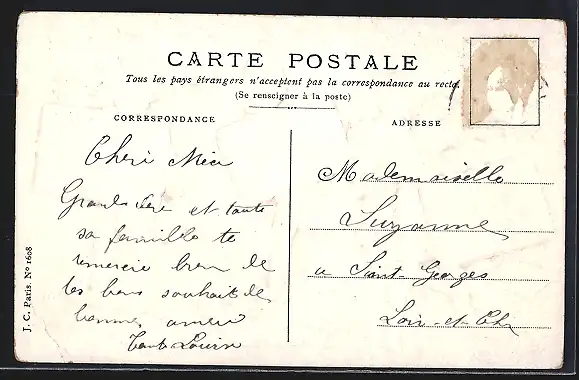 CARTE POSTALE
Tous les pays étrangers n'acceptent pas la correspondance au recto.
(Se renseigner à la poste)
CORRESPONDANCE
ADRESSE
Cheri
Grand et toute
sa famille te
remercie bien de
tes bons souhait de
bonne
Tante Louise
Mademoiselle
Suzanne
a Saint-Georges
Loir-et-Ch
J. C. Paris. Nº 1608